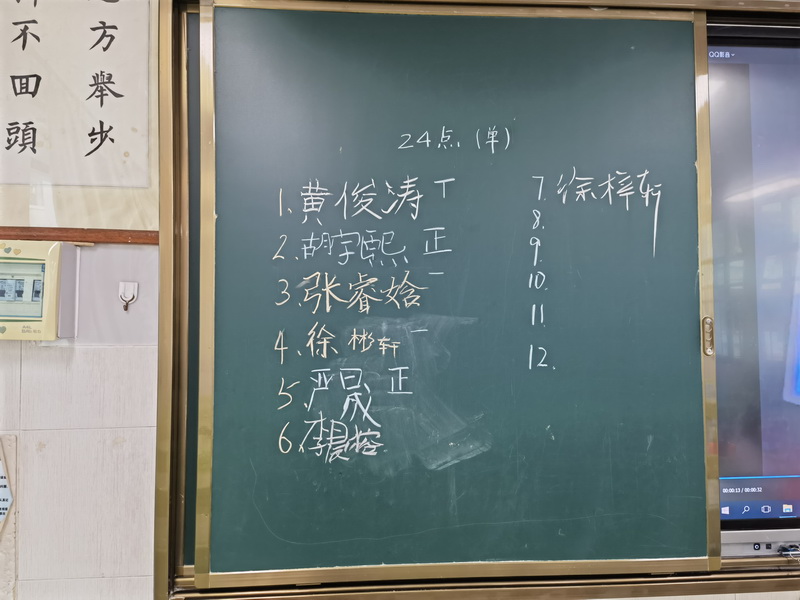 方舉步
不回頭
24点(单)
1.黄俊涛 T
2.胡宇熙 正
3.张睿姶 一
4.徐彬轩 一
5.严晟 正
6.李晨榕
7.徐梓轩
8.
9.
10.
11.
12.
QQ影音
00:00:13 / 00:00:32